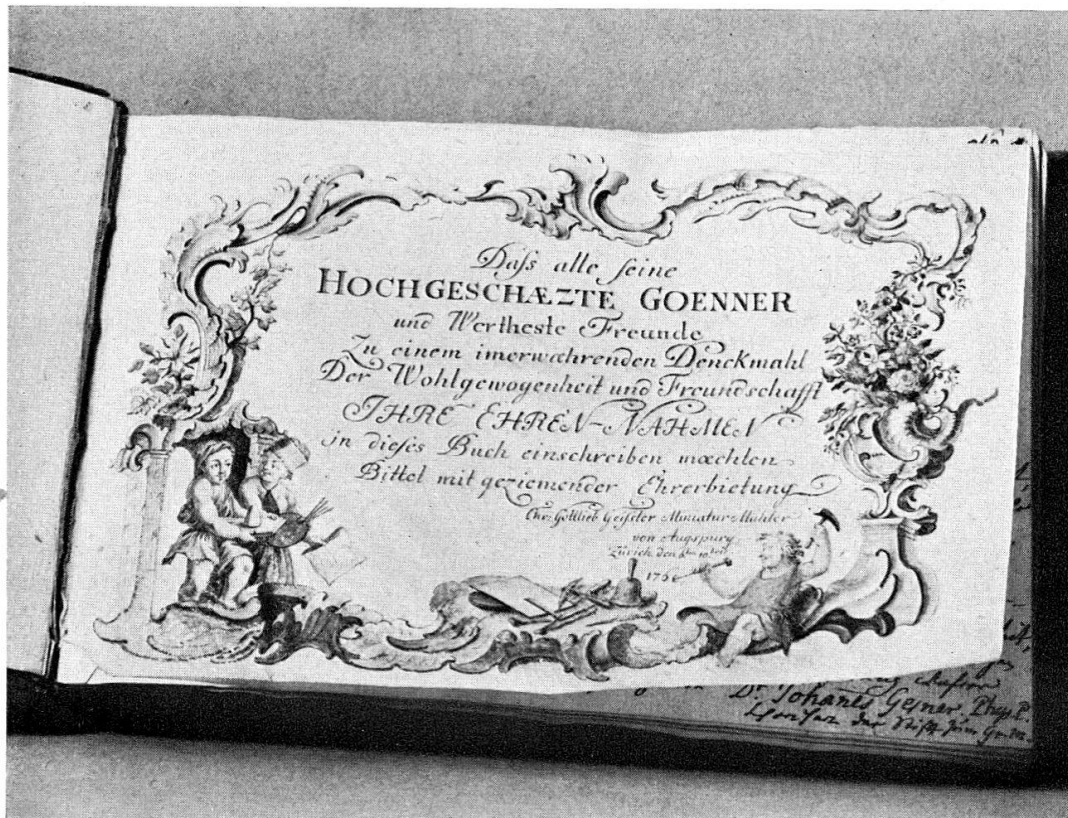 Daſs alle ſeine
HOCHGESCHÆZTE GOENNER
und Wertheste Freunde
Zu einem imerwæhrenden Denckmahl
Der Wohlgewogenheit und Freundschafft
IHRE EHREN-NAHMEN
in dieſes Buch einschreiben mœchten
Bittet mit geziemender Ehrerbietung
Chr: Gottlieb Geiſsler Miniatur-Mahler
von Augspurg
Zürich den
176
Dr. Johañes Gesner. Phys. P.
der Stifft zum